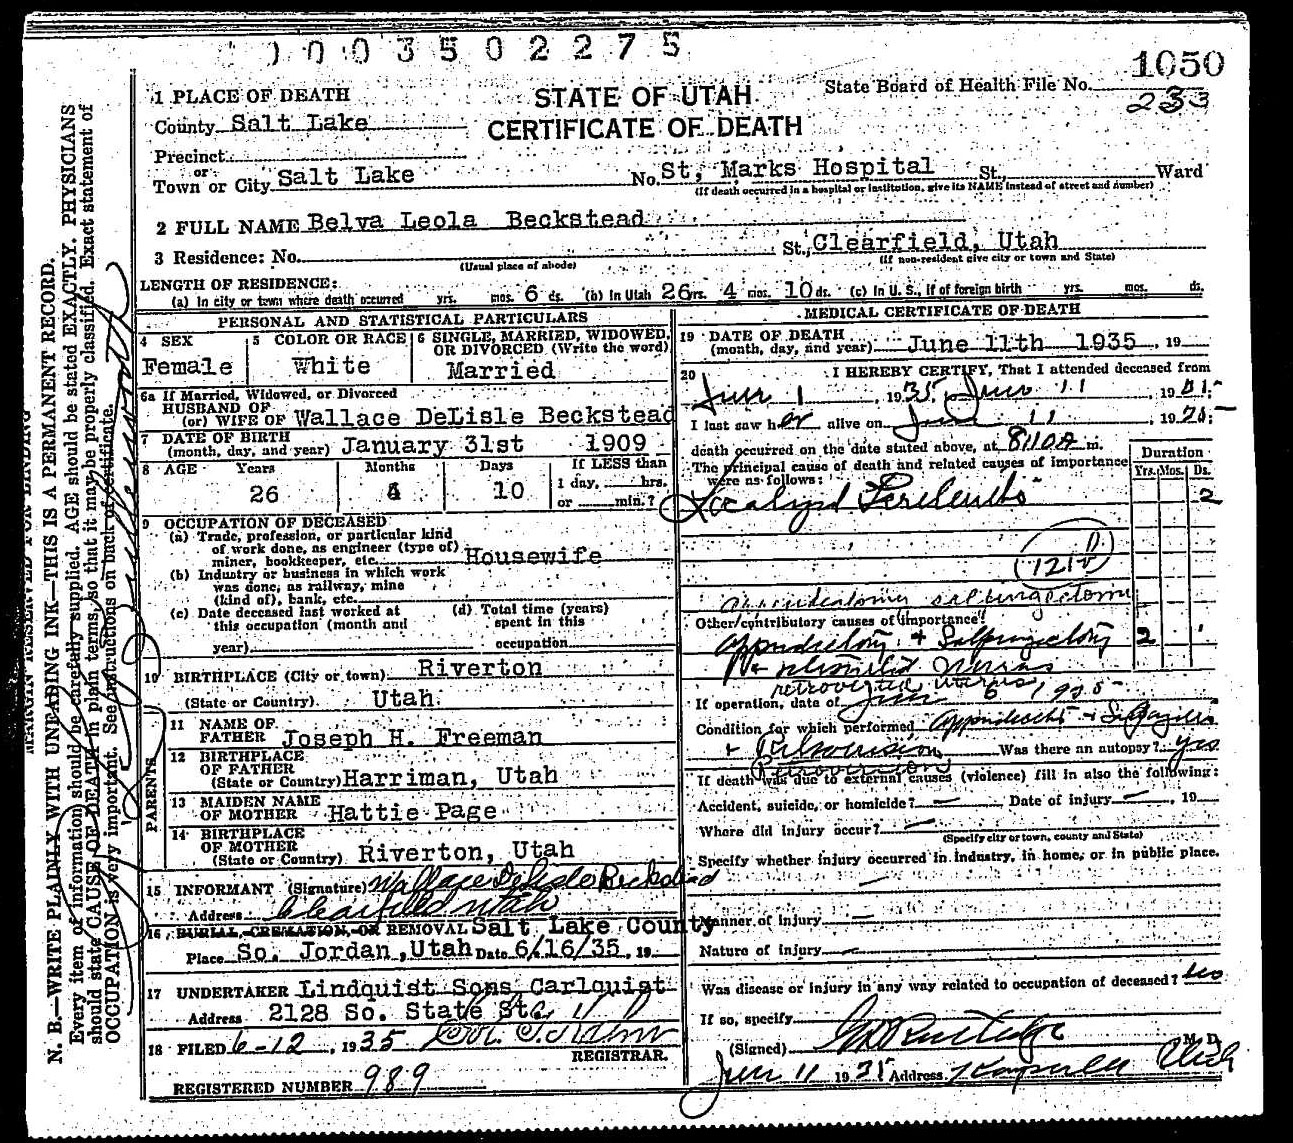 0003502275
1050
State Board of Health File No.
233
STATE OF UTAH
CERTIFICATE OF DEATH
1 PLACE OF DEATH
County Salt Lake
Precinct
or
Town or City Salt Lake No. St, Marks Hospital St., Ward
(If death occurred in a hospital or institution, give its NAME instead of street and number)
2 FULL NAME Belva Leola Beckstead
3 Residence: No. St., Clearfield, Utah
(Usual place of abode) (If non-resident give city or town and State)
LENGTH OF RESIDENCE:
(a) In city or town where death occurred yrs. mos. 6 ds. (b) In Utah 26 yrs. 4 mos. 10 ds. (c) In U. S., if of foreign birth yrs. mos. ds.
PERSONAL AND STATISTICAL PARTICULARS
4 SEX 5 COLOR OR RACE 6 SINGLE, MARRIED, WIDOWED, OR DIVORCED (Write the word)
Female White Married
6a If Married, Widowed, or Divorced
HUSBAND OF
(or) WIFE OF Wallace DeLisle Beckstead
7 DATE OF BIRTH
(month, day, and year) January 31st 1909
8 AGE Years Months Days If LESS than
26 4 10 1 day, hrs.
or min.?
9 OCCUPATION OF DECEASED
(a) Trade, profession, or particular kind
of work done, as engineer (type of)
miner, bookkeeper, etc. Housewife
(b) Industry or business in which work
was done, as railway, mine
(kind of), bank, etc.
(c) Date deceased last worked at (d) Total time (years)
this occupation (month and spent in this
year) occupation
10 BIRTHPLACE (City or town) Riverton
(State or Country) Utah
PARENTS
11 NAME OF
FATHER Joseph H. Freeman
12 BIRTHPLACE
OF FATHER
(State or Country) Harriman, Utah
13 MAIDEN NAME
OF MOTHER Hattie Page
14 BIRTHPLACE
OF MOTHER
(State or Country) Riverton, Utah
15 INFORMANT (Signature) Wallace DeLisle Beckstead
Address Clearfield Utah
16 BURIAL, CREMATION, OR REMOVAL Salt Lake County
Place So. Jordan, Utah Date 6/16/35, 19
17 UNDERTAKER Lindquist Sons Carlquist
Address 2128 So. State St.
18 FILED 6-12, 1935
REGISTRAR.
REGISTERED NUMBER 989
MEDICAL CERTIFICATE OF DEATH
19 DATE OF DEATH
(month, day, and year) June 11th 1935, 19
20 I HEREBY CERTIFY, That I attended deceased from
June 1, 1935, June 11, 19
I last saw her alive on June 11, 19
death occurred on the date stated above, at m.
The principal cause of death and related causes of importance
were as follows:
Duration
Yrs. Mos. Ds.
Localized 2
121
appendectomy salpingectomy
Other contributory causes of importance:
appendectomy + Salpingectomy 2
retroverted uterus
If operation, date of June 6 1935
Condition for which performed
+ Retroversion Was there an autopsy? yes
Retroversion
If death was due to external causes (violence) fill in also the following:
Accident, suicide, or homicide? — Date of injury —, 19
Where did injury occur? —
(Specify city or town, county and State)
Specify whether injury occurred in industry, in home, or in public place.
—
Manner of injury —
Nature of injury —
Was disease or injury in any way related to occupation of deceased? no
If so, specify
(Signed) M. D.
June 11 1935 Address Kaysville Utah
MARGIN RESERVED FOR BINDING
N. B.—WRITE PLAINLY WITH UNFADING INK—THIS IS A PERMANENT RECORD.
Every item of information should be carefully supplied. AGE should be stated EXACTLY. PHYSICIANS
should state CAUSE OF DEATH in plain terms, so that it may be properly classified. Exact statement of
OCCUPATION is very important. See instructions on back of certificate.